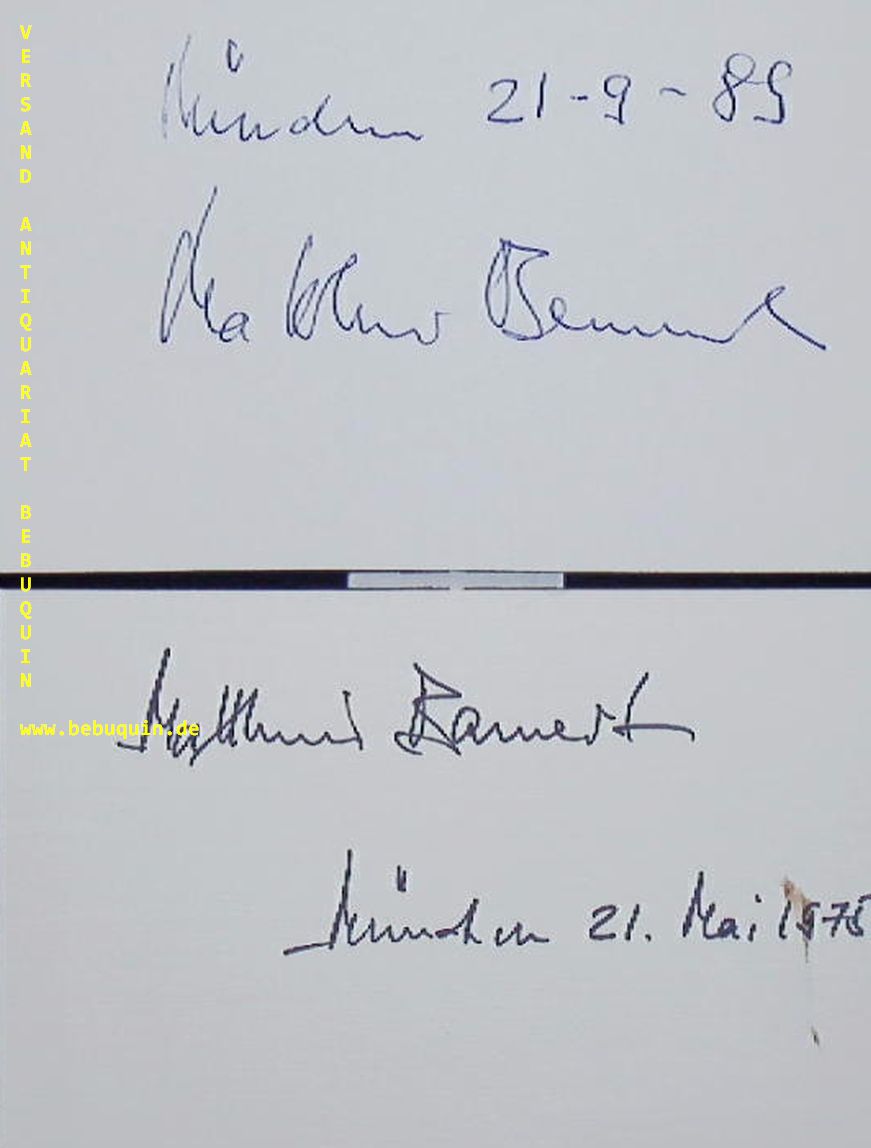 München 21-9-89
Matthias Bamert
Matthias Bamert
München 21. Mai 1975
VERSAND ANTIQUARIAT BEBUQUIN
www.bebuquin.de